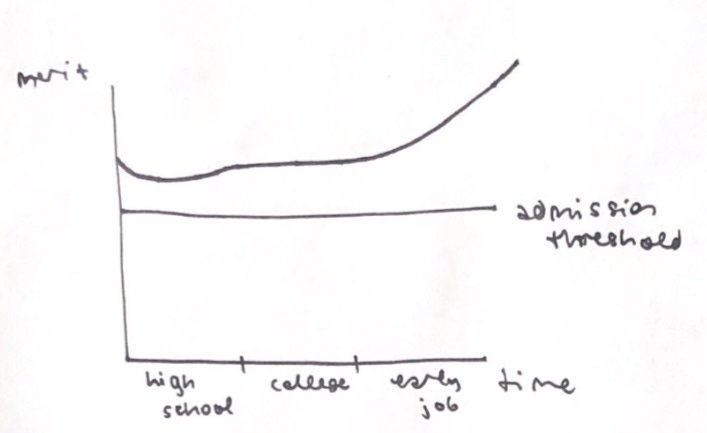 merit
admission
threshold
high
school
college
early
job
time